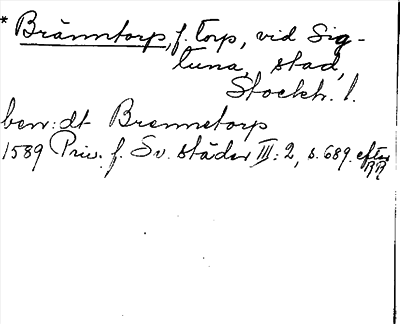 * Bränntorp, f. torp, vid Sig-
tuna, stad,
Stockh. l.
ben: dt Brennetorp
1589 Priv. f. Sv. städer III: 2, s. 689. efter
RR